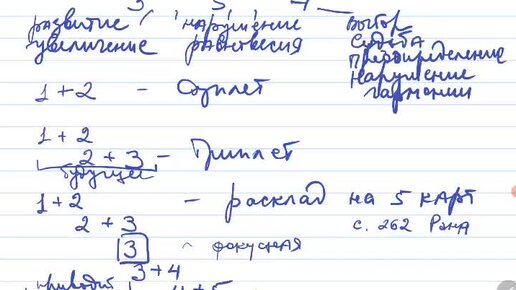 развитие нарушение выбор
увеличение равновесия судьба
предопределение
нарушение
гармонии
1+2 - Дуплет
1+2
2+3 - Триплет
будущее
1+2 - расклад на 5 карт
2+3 с. 262 Рэна
3 - фокусная
3+4
приводит 4+5